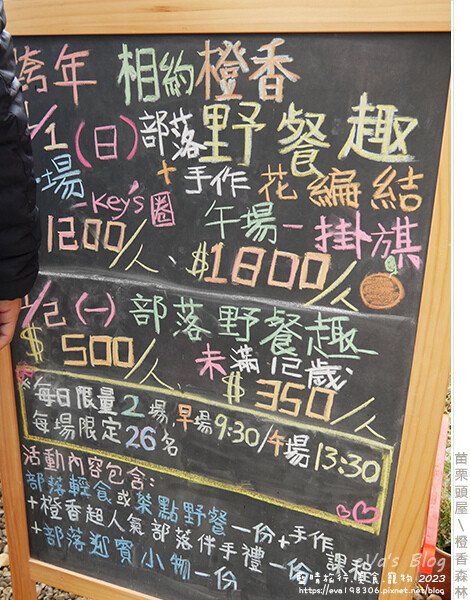 跨年 相約橙香
1/1(日)部落野餐趣
+手作花編結
場-Key's圈
午場-掛旗
1200/人、$1800/人
1/2(一)部落野餐趣
$500/人 未滿12歲:$350/人
※每日限量2場,早場9:30/午場13:30
每場限定26名
活動內容包含:
部落輕食或葉點野餐一份+手作課程
+橙香超人氣部落伴手禮一份
+部落迎賓小物一份
苗栗頭屋\橙香森林
Eva's Blog
雨晴旅行.美食.寵物 2023
https://eva198306.pixnet.net/blog